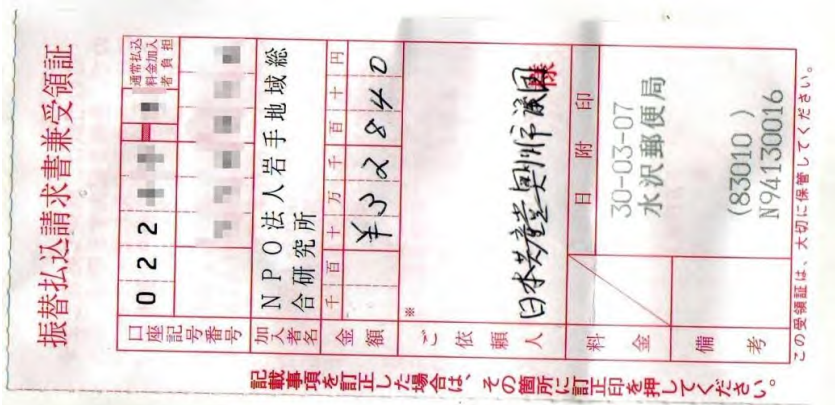 振替払込請求書兼受領証
口座記号番号
022
通常払込料金加入者負担
加入者名
NPO法人岩手地域総
合研究所
金額
千 百 十 万 千 百 十 円
¥32840
ご依頼人
※
日本共産党奥州市議団
様
料金
日附印
30-03-07
水沢郵便局
備考
(83010 )
N94130016
この受領証は、大切に保管してください。
記載事項を訂正した場合は、その箇所に訂正印を押してください。